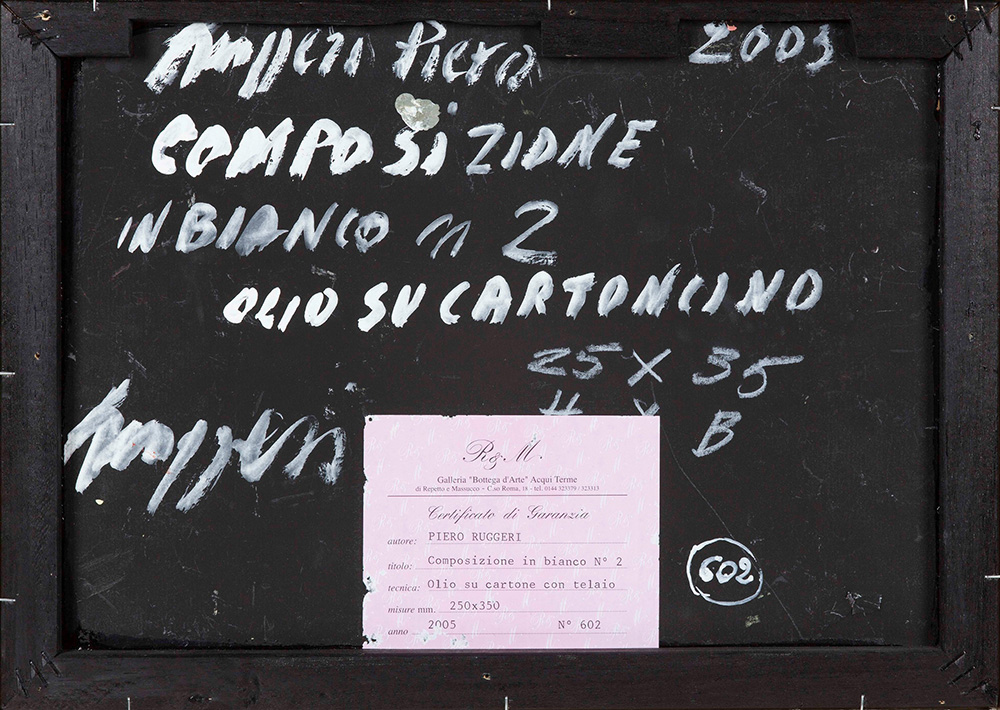 Ruggeri Piero 2003
COMPOSIZIONE
IN BIANCO n 2
OLIO SU CARTONCINO
25 X 35
H X B
Ruggeri
R & M.
Galleria "Bottega d'Arte" Acqui Terme
di Repetto e Massucco - C.so Roma, 18 - tel. 0144 323379 / 323313
Certificato di Garanzia
autore: PIERO RUGGERI
titolo: Composizione in bianco N° 2
tecnica: Olio su cartone con telaio
misure mm. 250x350
anno 2005 N° 602
602